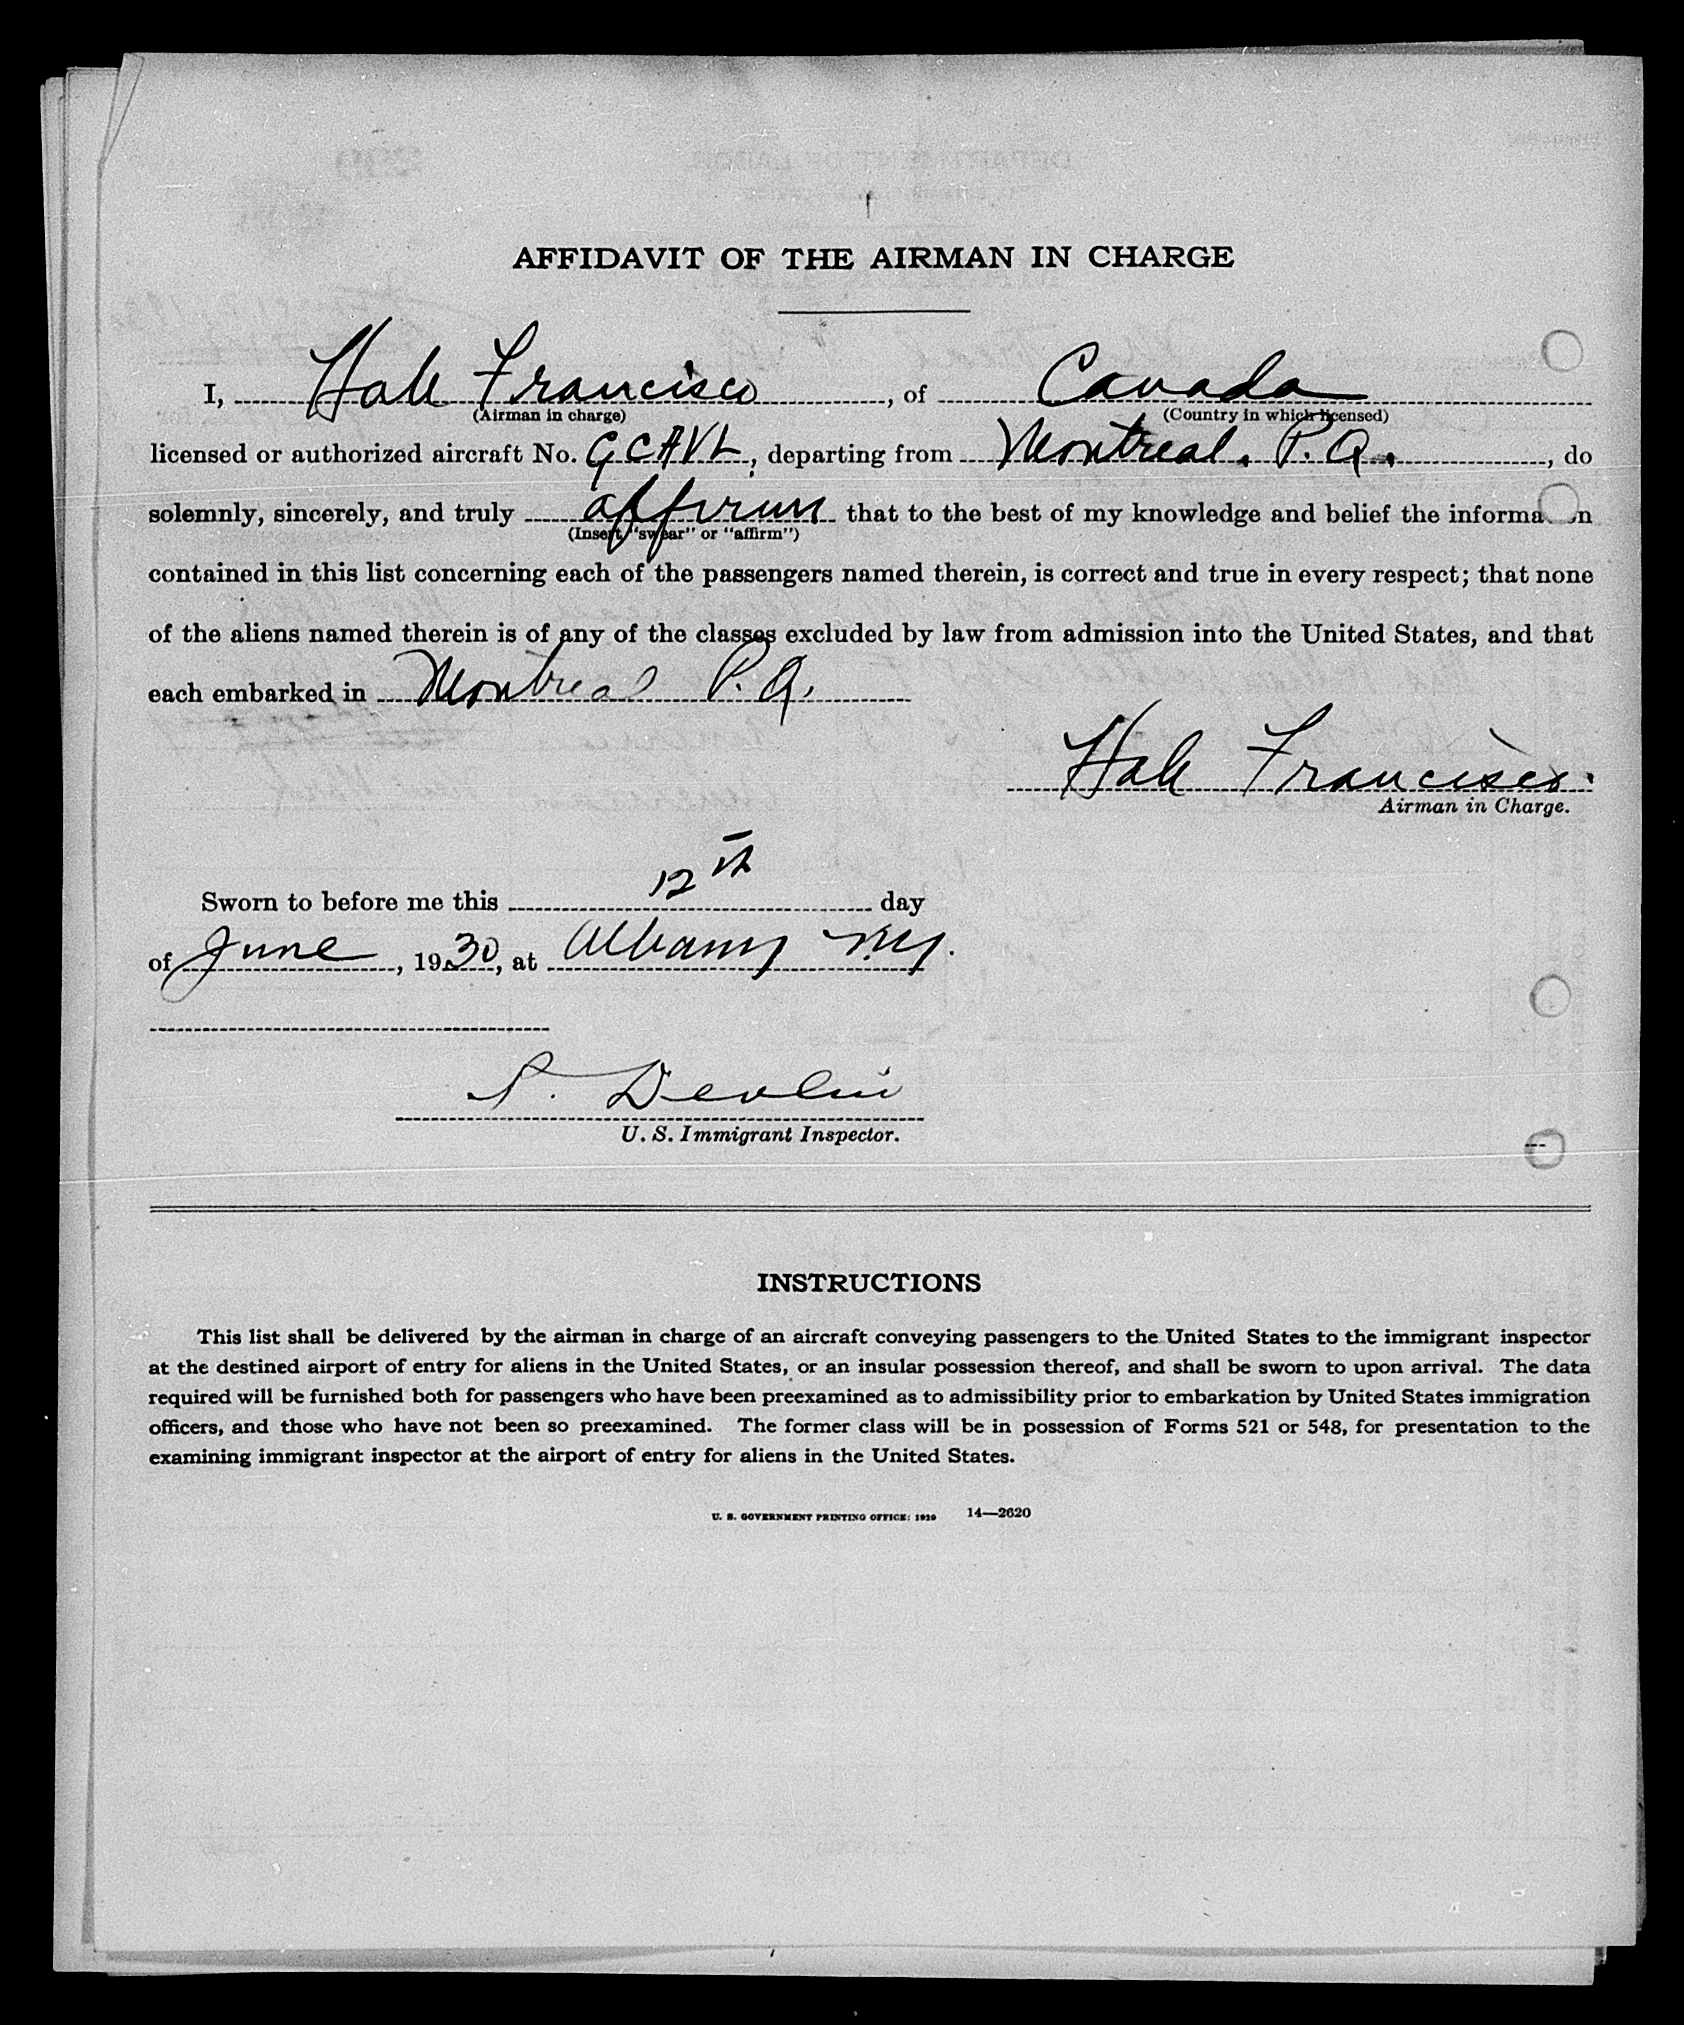 AFFIDAVIT OF THE AIRMAN IN CHARGE
I, Hale Francisco, of Canada
(Airman in charge) (Country in which licensed)
licensed or authorized aircraft No. GCAVL, departing from Montreal. P.Q., do
solemnly, sincerely, and truly affirm that to the best of my knowledge and belief the informa n
(Insert "swear" or "affirm")
contained in this list concerning each of the passengers named therein, is correct and true in every respect; that none
of the aliens named therein is of any of the classes excluded by law from admission into the United States, and that
each embarked in Montreal P.Q.
Hale Francisco.
Airman in Charge.
Sworn to before me this 12th day
of June, 1930, at Albany N.Y.
P. Devlin
U. S. Immigrant Inspector.
INSTRUCTIONS
This list shall be delivered by the airman in charge of an aircraft conveying passengers to the United States to the immigrant inspector
at the destined airport of entry for aliens in the United States, or an insular possession thereof, and shall be sworn to upon arrival. The data
required will be furnished both for passengers who have been preexamined as to admissibility prior to embarkation by United States immigration
officers, and those who have not been so preexamined. The former class will be in possession of Forms 521 or 548, for presentation to the
examining immigrant inspector at the airport of entry for aliens in the United States.
U. S. GOVERNMENT PRINTING OFFICE: 1929 14—2620